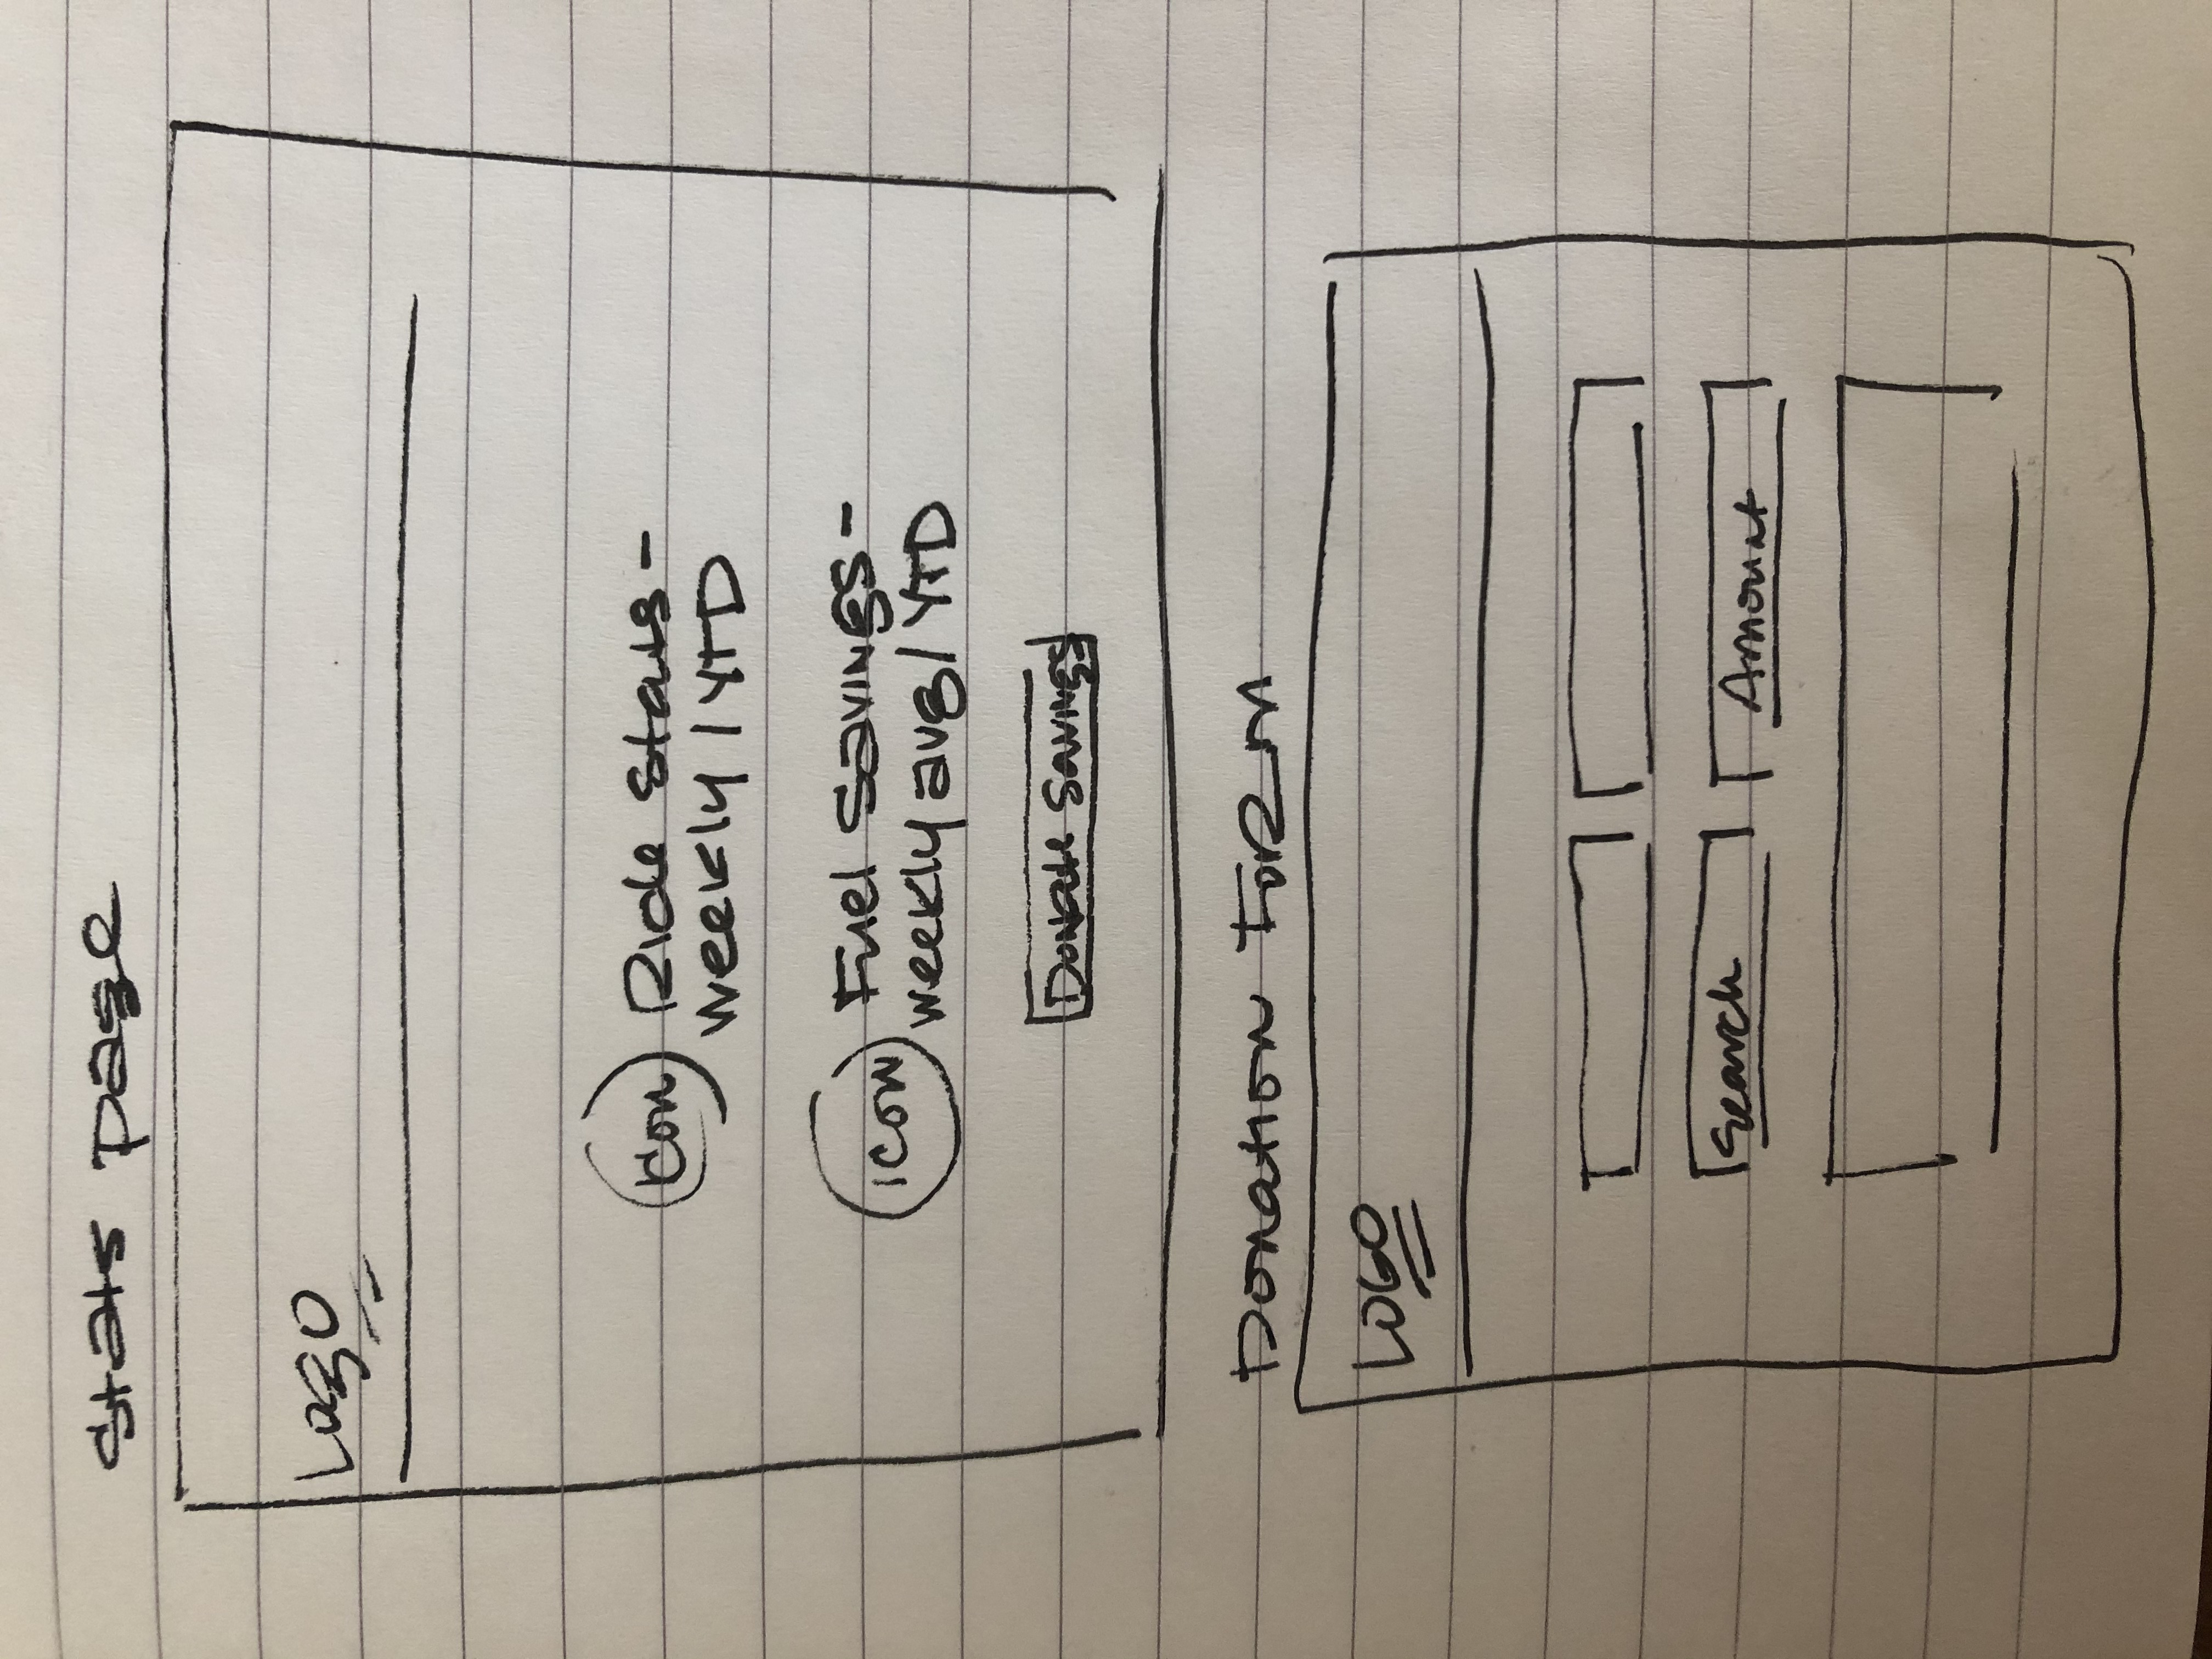 Stats page
Logo
icon Ride Stats -
weekly / YTD
icon Fuel Savings -
weekly avg / YTD
Donate Savings
Donation Form
LOGO
Search Amount